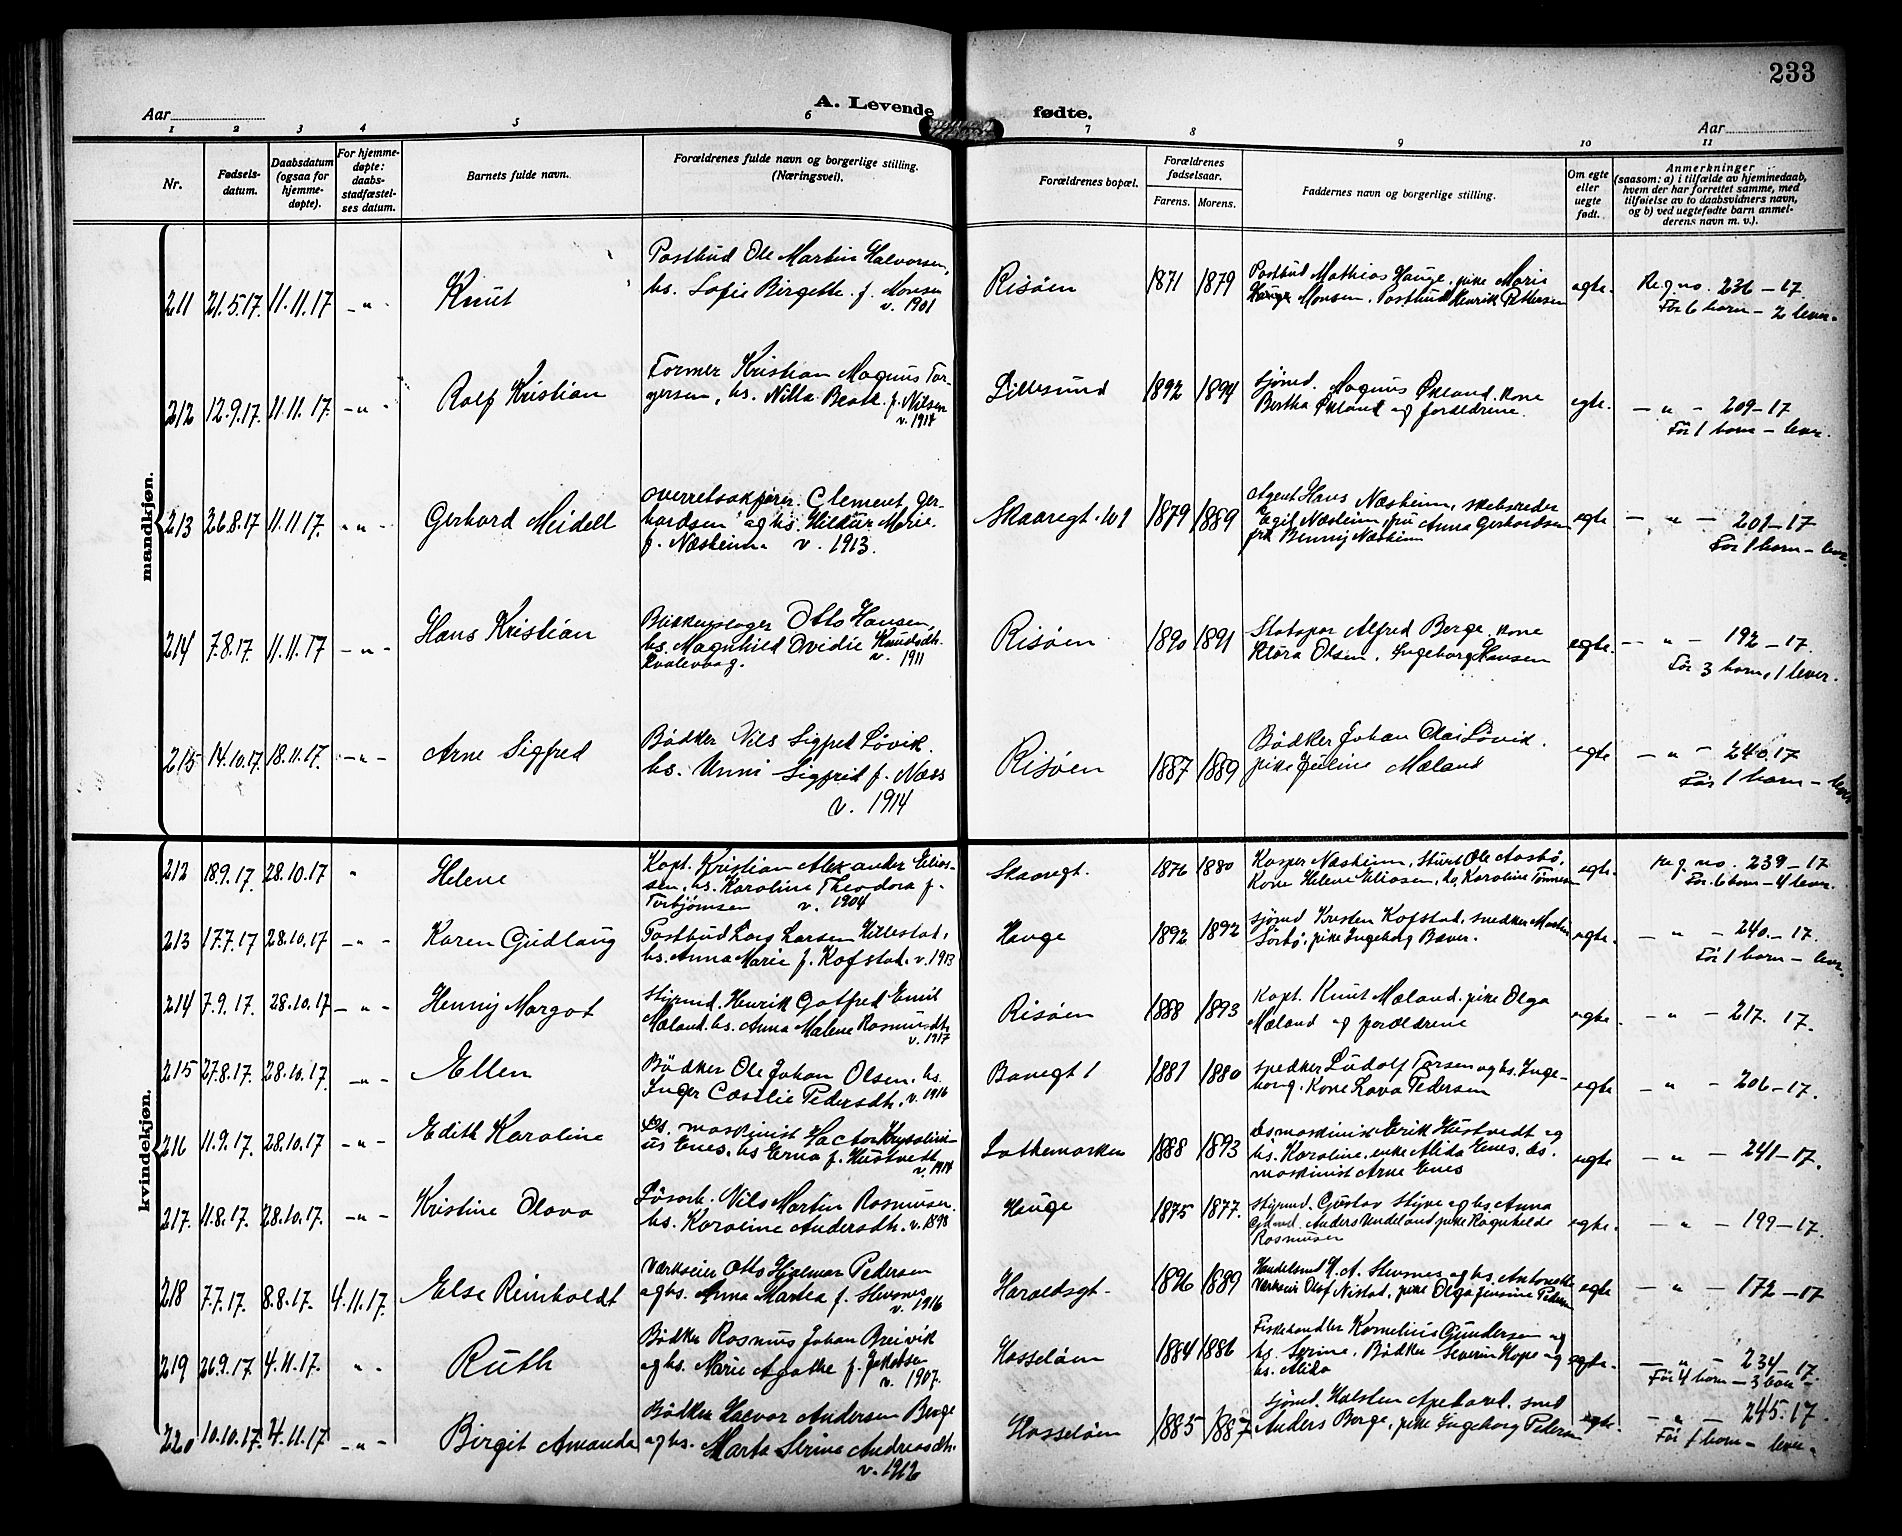 233
A. Levende fødte.
Aar
Aar
1 2 3 4 5 6 7 8 9 10 11
Nr.
Fødsels-
datum.
Daabsdatum
(ogsaa for
hjemme-
døpte).
For hjemme-
døpte:
daabs-
stadfæstel-
ses datum.
Barnets fulde navn.
Forældrenes fulde navn og borgerlige stilling.
(Næringsvei).
Forældrenes bopæl.
Forældrenes
fødselsaar.
Farens. Morens.
Faddernes navn og borgerlige stilling.
Om egte
eller
uegte
født.
Anmerkninger
(saasom: a) i tilfælde av hjemmedaab,
hvem der har forrettet samme, med
tilføielse av to daabsvidners navn,
og b) ved uegtefødte barn anmel-
derens navn m. v.).
mandkjøn.
211 21.5.17. 11.11.17 - " - Knut
Postbud Ole Martin Halvorsen,
hs. Sofie Birgette f. Monsen
v. 1901
Risøen 1871 1879
Postbud Mathias Hauge, pike Marie
Hauge Monsen, Postbud Henrik Pettersen
egte. Reg. no. 236-17.
Før 6 born - 2 lever.
212 12.9.17. 11.11.17. - " - Rolf Kristian
Former Kristian Magnus Tor-
gersen, hs. Nilla Beate f. Nilsen
v. 1914
Lillesund 1892 1894
Sjømd. Magnus Økland. Kone
Bertha Økland og forældrene.
egte. - " - 209-17
Før 1 born - lever.
213 26.8.17 11.11.17. " " - Gerhard Meidell
Overretssakfører Clement Ger-
hardsen og hs. Hildur Marie
f. Næsheim. v. 1913.
Skaaregt. 101 1879 1889
Agent Hans Næsheim, skibsreder
Egil Næsheim, fru Anna Gerhardsen
frk Benny Næsheim
egte - " - 201-17
Før 1 born - lever.
214 7.8.17. 11.11.17 - " - Hans Kristian
Blikkenslager Otto Hansen,
hs. Magnhild Ovidie Knudsdtr.
Kvalevaag. v. 1911
Risøen 1890 1891
Alfred Berge. Kone
Klara Olsen, Ingeborg Hansen
egte. - " - 192-17.
Før 3 born, 1 lever.
215 14.10.17. 18.11.17. - " - Arne Sigfred
Bødker Nils Sigfred Løvik.
hs. Unni Sigfrid f. Næss
v. 1914
Risøen 1887 1889
Bødker Johan Olai Løvik.
pike Juline Mæland
egte - " - 240.17
Før 1 born - lever
kvindekjøn.
212 18.9.17 28.10.17 " Helene
Kapt. Kristian Alexander Elias-
sen, hs. Karoline Theodora f.
Torbjørnsen v. 1904
Skaaregt. 1876 1880
Kasper Næsheim, Ole Aasbø,
Kone Helene Eliasen, do. Karoline Tønnesen
egte. Reg. no. 239-17
Før 6 born - 4 lever.
213 17.7.17 28.10.17 - " - Karen Gudlaug
Postbud Lars Larsen Hillestad,
hs. Anna Marie f. Kofstad. v. 1913
Hauge 1892 1892
Sjømd Kristen Kofstad, snedker Martin
Sørbø, pike Ingeborg Bæver.
egte. - " - 240-17.
Før 1 born - lever.
214 7.9.17 28.10.17 - " - Henny Margot
Styrmd. Henrik Gotfred Emil
Mæland. hs. Anna Malene Rasmusdtr.
v. 1917
Risøen 1888 1893
Kapt. Knut Mæland. pike Olga
Mæland og forældrene
egte. - " - 217. 17.
215 27.8.17. 28.10.17. - " - Ellen
Bødker Ole Johan Olsen. hs.
Inger Cæcilie Pedersdtr. v. 1916
1881 1880
snedker Ludolf Torsen og hs. Inge-
borg. Kone Lava Pedersen
egte - " - 206-17.
216 11.9.17. 28.10.17. - " - Edith Karoline
Ds. maskinist
Enes, hs Erna f. Hustvedt
v. 1914
Lothemarken 1888 1893
ds maskinist Erik Hustvedt og
hs. Karoline, enke Alida Enes, ds.
maskinist Arne Enes
egte - " - 241-17.
217. 11.8.17. 28.10.17. - " - Kristine Olava
Løsarb. Nils Martin Rasmusen.
hs. Karoline Andersdtr. v. 1898
Hauge 1875 1877.
Styrmd. Gustav Styve og hs. Anna
Anders Undeland, pike Ragnhilda
Rasmusen
egte. - " - 199-17.
218 7.7.17. 8.8.17. 4.11.17. Else Reinholdt
Værkseier Otto Hjalmar Pedersen
og hs. Anna Martea f. Stensnes
v. 1916
Haraldsgt. 1896 1889
Handelsmd H. A. Stensnes og hs. Antonette
Værkseier Olaf Nistad, pike Olga Jensine Pedersen
egte - " - 172-17
219 26.9.17. 4.11.17. " - Ruth
Bødker Rasmus Johan Breivik
og hs. Marie Agathe f. Jakobsen
v. 1907.
Hasseløen 1884 1886
Fiskehandler Kornelius Gundersen og
hs. Serine, Bødker Severin Hope og
hs. Alida
egte. - " - 234-17.
Før 4 born - 3 born -
220 10.10.17. 4.11.17 - " - Birgit Amanda
Bødker Halvor Andersen Berge
og hs. Marta Serine Andreasdtr.
v. 1912
Hasseløen 1885 1887
Sjømd. Halsten Apeland, smed
Anders Berge, pike Ingeborg Pedersen
egte. - " - 245.17.
Før 1 born - lever.